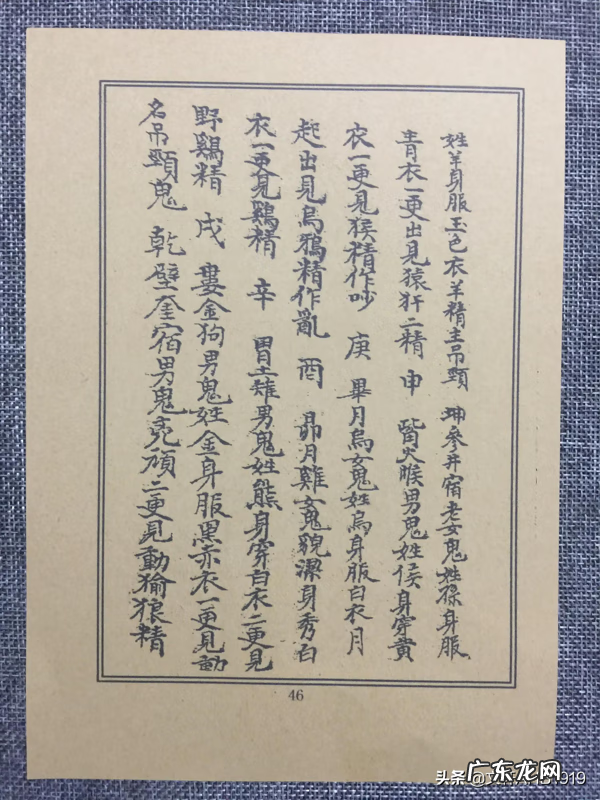 姓羊身服玉色衣羊精主吊頸　坤參井宿老女鬼姓猿身服
青衣一更出見猿犴二精　申　觜火睺男鬼姓侯身穿黄
衣一更見猴精作吵　庚　畢月烏女鬼姓烏身服白衣月
起出見烏鴉精作亂　酉　昴月雞女鬼貌潔身秀白
衣一更見鷄精　辛　胃土雉男鬼姓熊身穿白衣二更見
野鷄精　戌　婁金狗男鬼姓金身服黑赤衣一更見動
名吊頸鬼　乾　壁奎宿男鬼亮頑二更見動㺄狼精
46
头条
广东龙网
1919